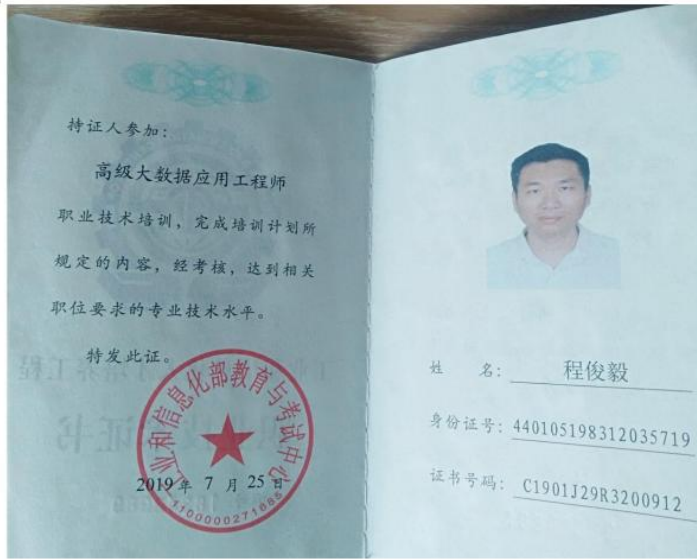 持证人参加：
高级大数据应用工程师
职业技术培训，完成培训计划所
规定的内容，经考核，达到相关
职位要求的专业技术水平。
特发此证。
工业和信息化部教育与考试中心
2019 年 7 月 25 日
1100000271685
姓 名： 程俊毅
身份证号： 440105198312035719
证书号码： C1901J29R3200912